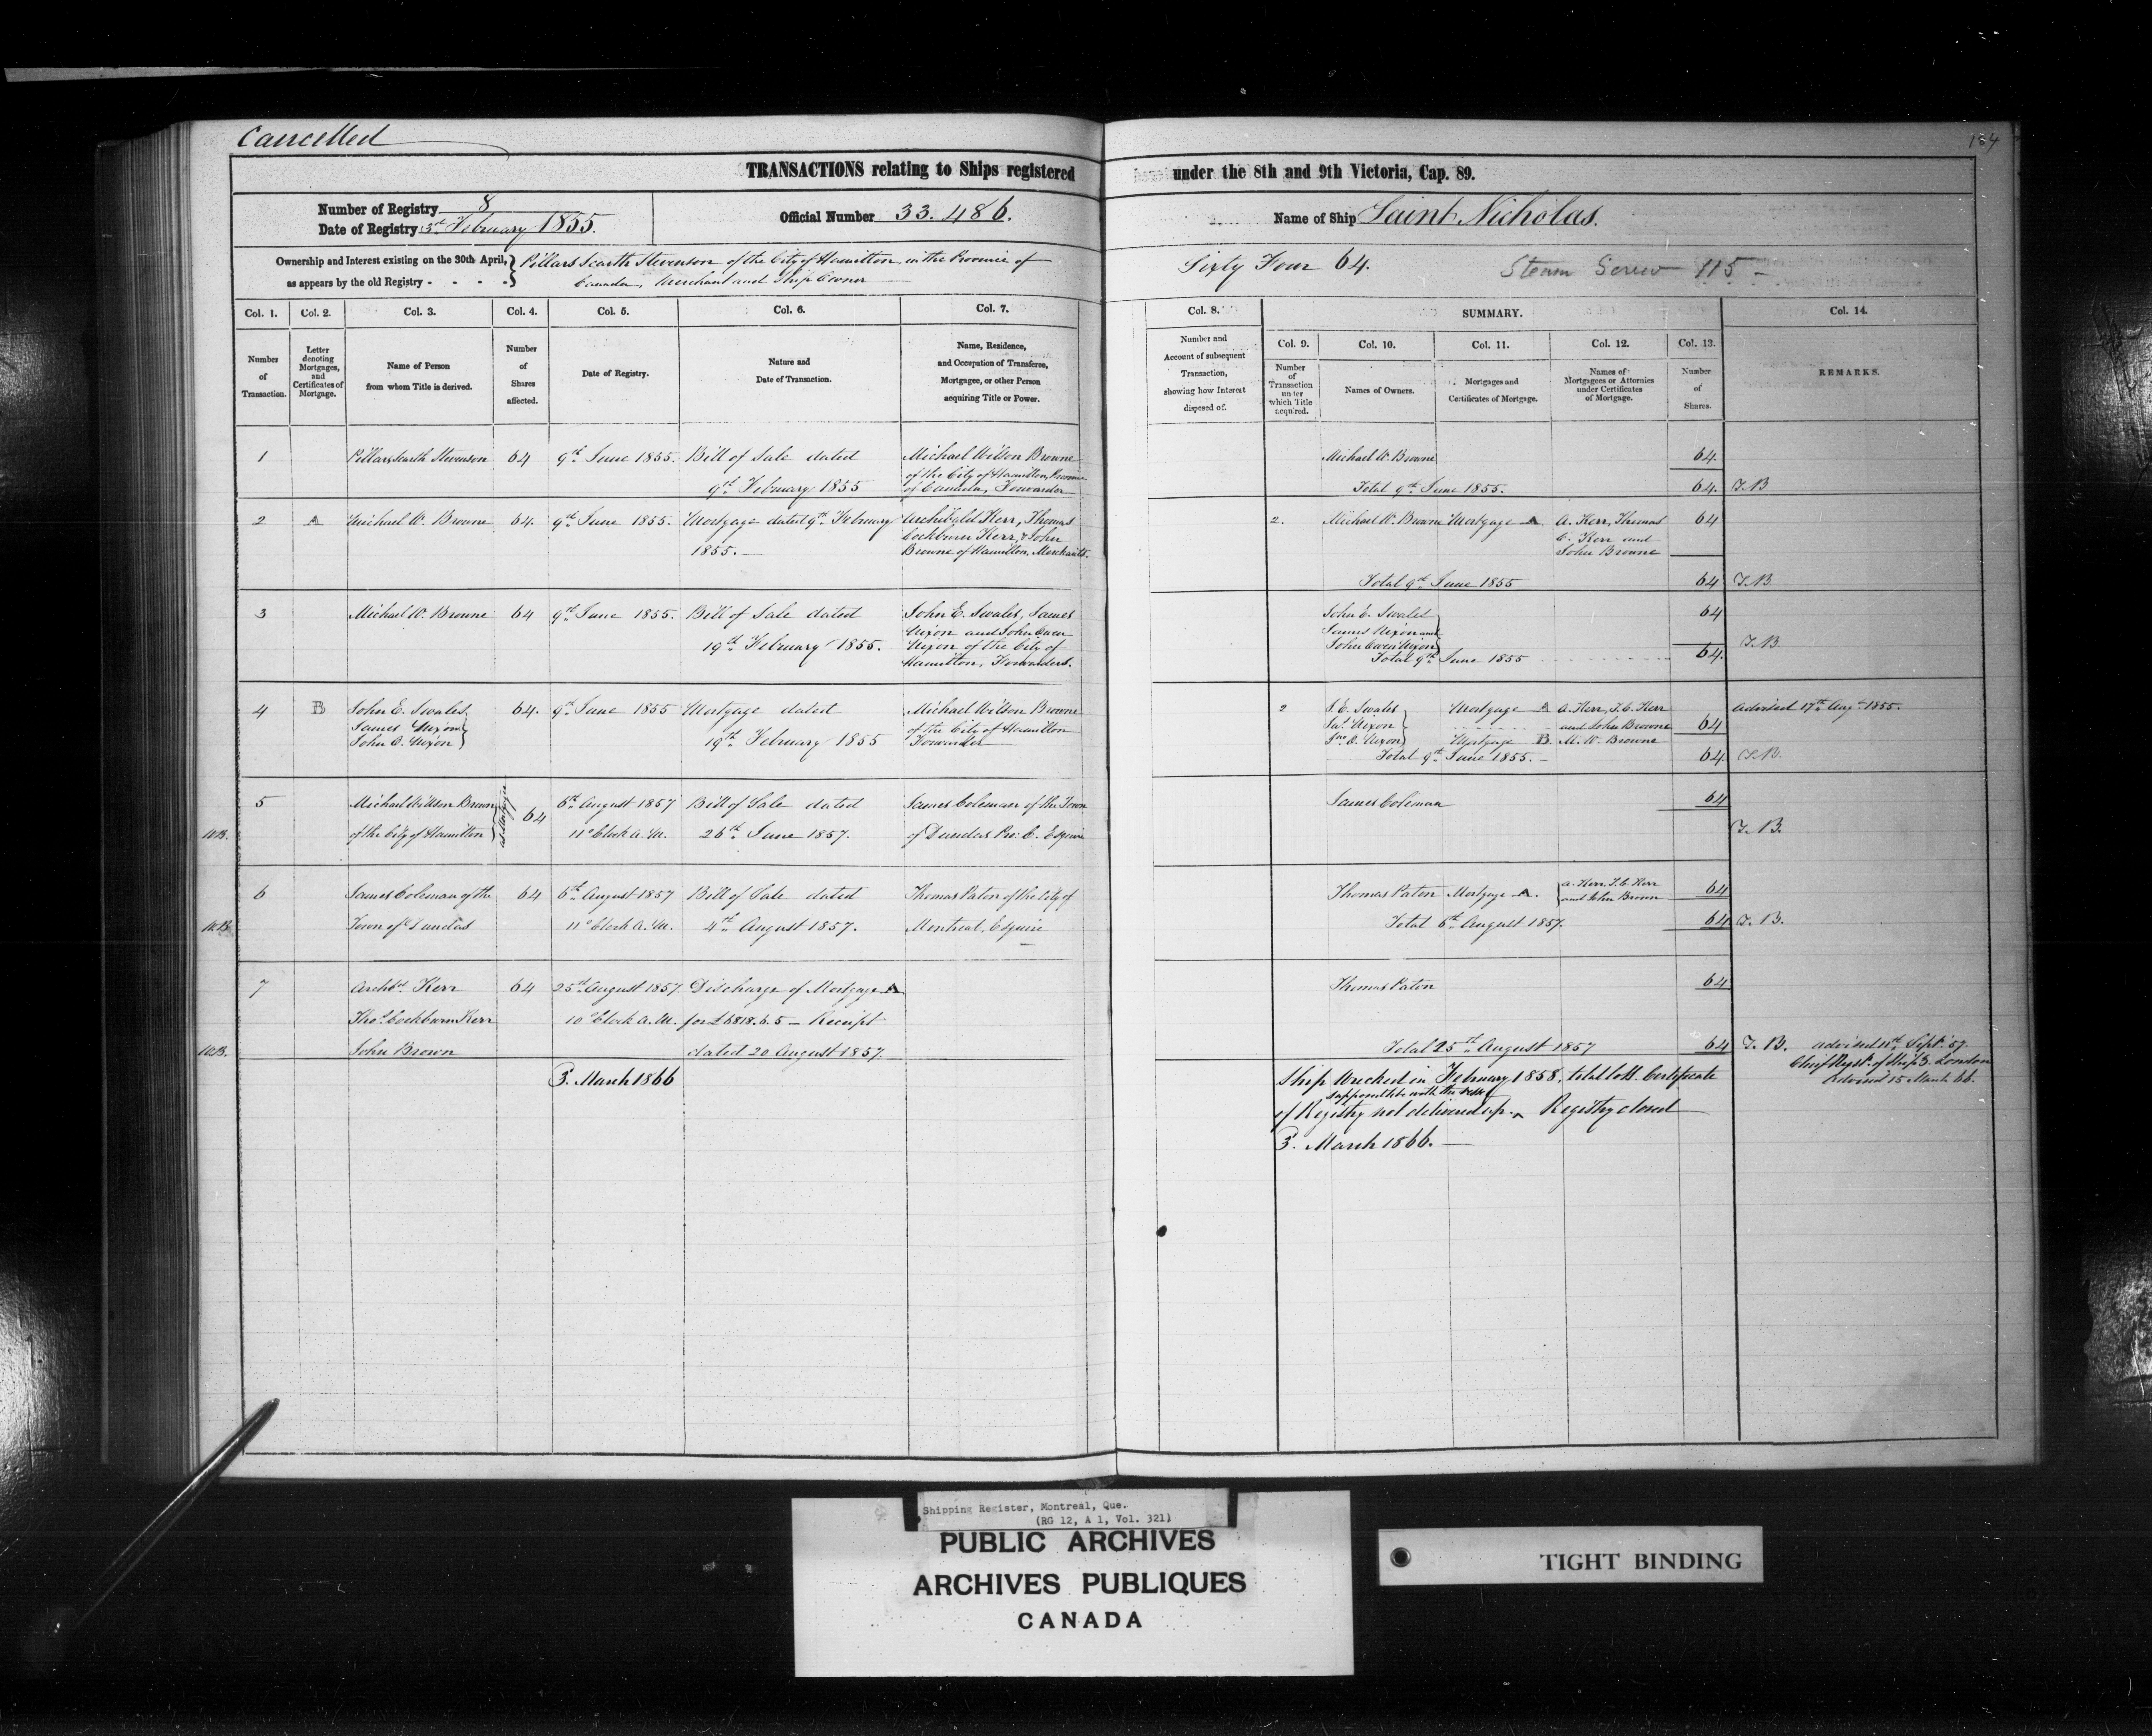 Cancelled
184
TRANSACTIONS relating to Ships registered under the 8th and 9th Victoria, Cap. 89.
Number of Registry 8
Date of Registry 3rd February 1855.
Official Number 33.486.
Name of Ship Saint Nicholas.
Ownership and Interest existing on the 30th April, as appears by the old Registry - - - -
Pillars Scarth Stevenson of the City of Hamilton, in the Province of
Canada, Merchant and Ship Owner
Sixty Four 64.
Steam Screw 115 -
Col. 1. Col. 2. Col. 3. Col. 4. Col. 5. Col. 6. Col. 7.
Number of Transaction.
Letter denoting Mortgages, and Certificates of Mortgage.
Name of Person from whom Title is derived.
Number of Shares affected.
Date of Registry.
Nature and Date of Transaction.
Name, Residence, and Occupation of Transferee, Mortgagee, or other Person acquiring Title or Power.
Col. 8. SUMMARY. Col. 14.
Number and Account of subsequent Transaction, showing how Interest disposed of.
Col. 9. Col. 10. Col. 11. Col. 12. Col. 13.
Number of Transaction under which Title acquired.
Names of Owners.
Mortgages and Certificates of Mortgage.
Names of Mortgagees or Attornies under Certificates of Mortgage.
Number of Shares.
REMARKS.
1 Pillars Scarth Stevenson 64 9th June 1855. Bill of Sale dated Michael Wilson Browne
9th February 1855 of the City of Hamilton, Province
of Canada, Forwarder
Michael W. Browne 64.
Total 9th June 1855. 64. T.B
2 A Michael W. Browne 64. 9th June 1855. Mortgage dated 9th February Archibald Kerr, Thomas
1855. — Cockburn Kerr, & John
Browne of Hamilton, Merchants.
2. Michael W. Browne Mortgage A. A. Kerr, Thomas 64
C. Kerr and
John Browne
Total 9th June 1855 64 T.B.
3 Michael W. Browne 64 9th June 1855. Bill of Sale dated John E. Swales, James
19th February 1855. Nixon and John Owen
Nixon of the City of
Hamilton, Forwarders.
John E. Swales 64
James Nixon and
John Owen Nixon
Total 9th June 1855 64. T.B.
4 B John E. Swales 64. 9th June 1855 Mortgage dated Michael Wilson Browne
James Nixon of the City of Hamilton
John O. Nixon 19th February 1855 Forwarder
2 J. E. Swales Mortgage A A. Kerr, T. C. Kerr Advised 17th Augt 1855.
Jas. Nixon and John Browne 64
Jno. O. Nixon Mortgage B. M. W. Browne
Total 9th June 1855. - 64 T.B.
5 Michael Willson Brown as Mortgagee 64 6th August 1857 Bill of Sale dated James Coleman of the Town
of the City of Hamilton 11 o'Clock A.M. 26th June 1857. of Dundas Pro: C. Esquire
James Coleman 64
T.B.
6 James Coleman of the 64 6th August 1857 Bill of Sale dated Thomas Paton of the City of
Town of Dundas 11 o'Clock A.M. 4th August 1857. Montreal, Esquire
Thomas Paton Mortgage A. A. Kerr, T. C. Kerr 64
and John Brown
Total 6th August 1857. 64 T.B.
7 Archd. Kerr 64 25th August 1857 Discharge of Mortgage A.
Thos. Cockburn Kerr 10 o'Clock A.M. for £6818.6.5 — Receipt
John Brown dated 20 August 1857.
Thomas Paton 64
Total 25th August 1857 64 T.B. advised 11th Sept. 57.
Chief Regr. of Ships London
Advised 15 March 66.
3. March 1866
Ship Wrecked in February 1858, total loss. Certificate
supposed lost with the vessel
of Registry not delivered up. ^ Registry closed
3. March 1866. —
Shipping Register, Montreal, Que.
(RG 12, A 1, Vol. 321)
PUBLIC ARCHIVES
ARCHIVES PUBLIQUES
CANADA
TIGHT BINDING